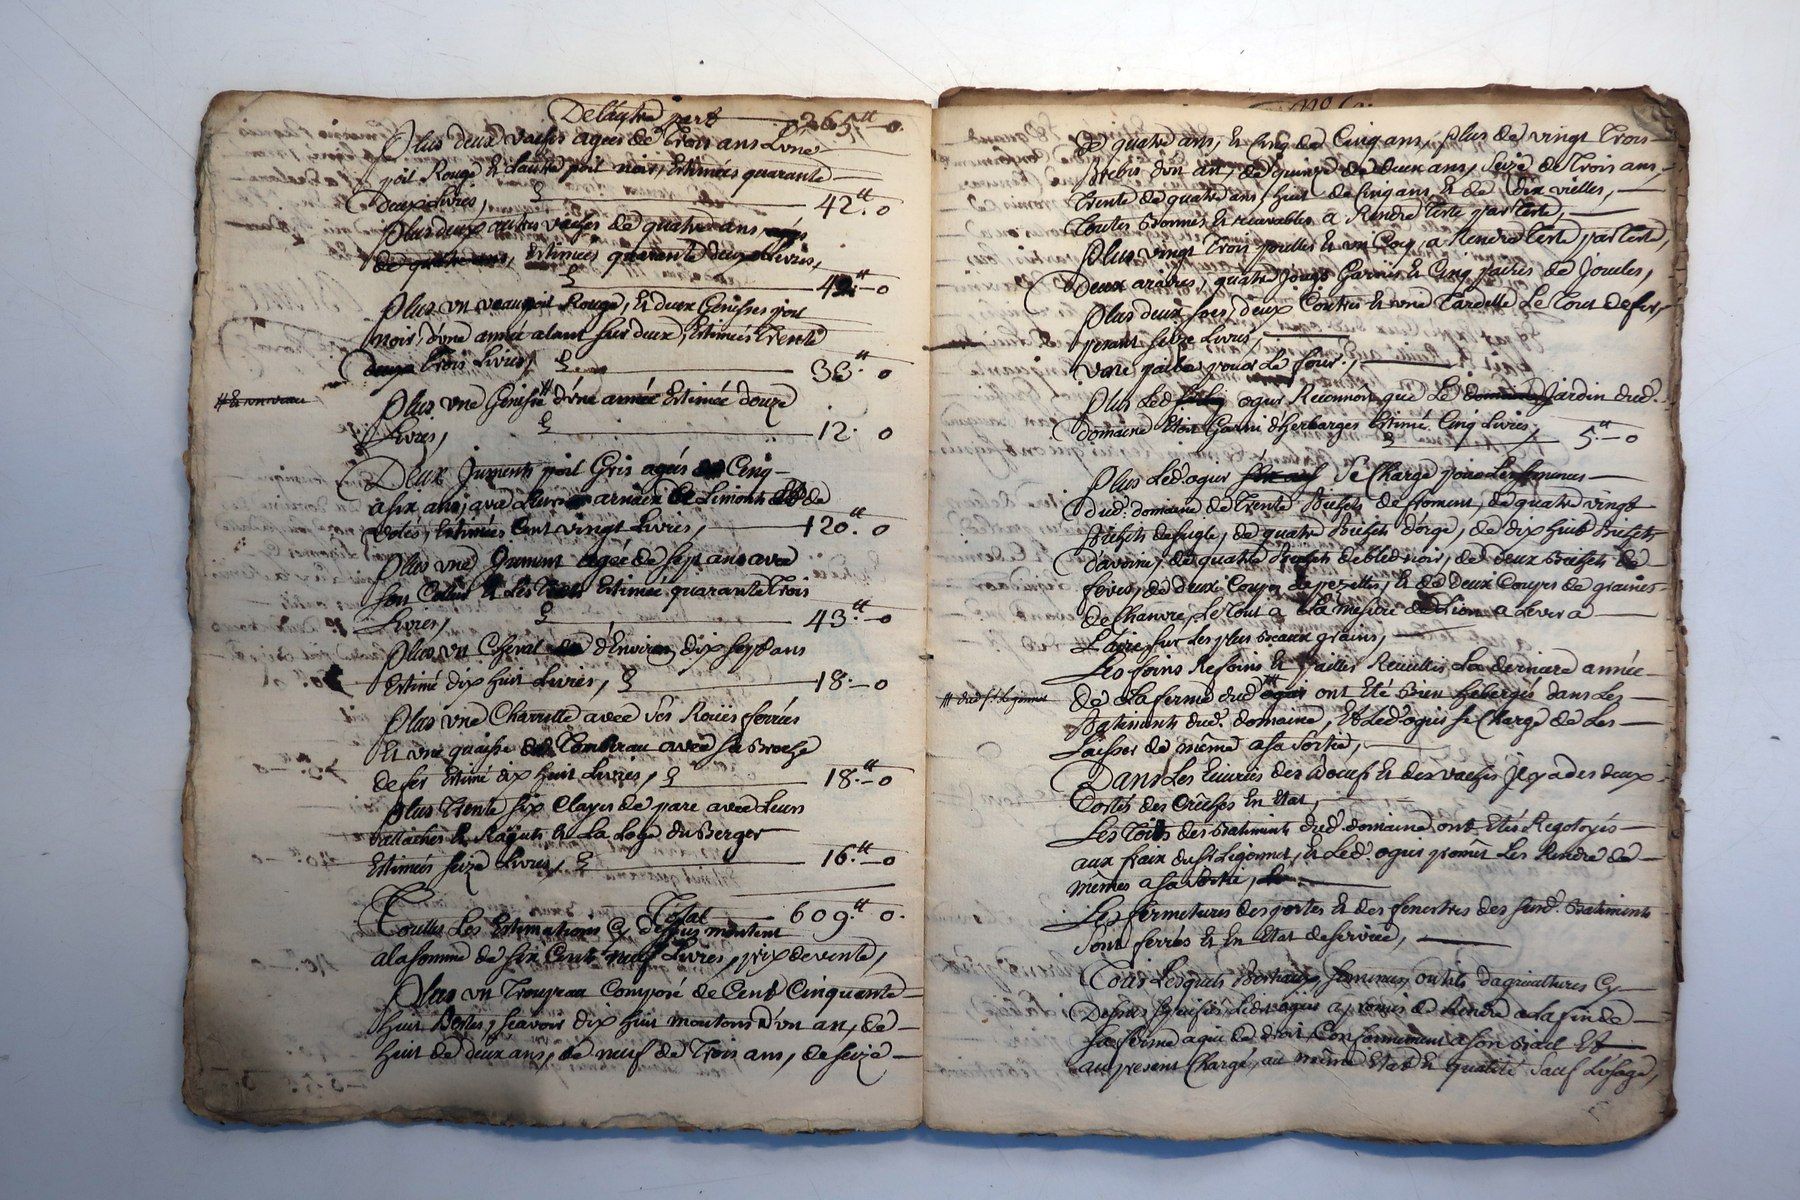 De l'autre part 265.tt 0.
Plus deux vaches agées de trois ans L'une
poil Rouge Et L'autre poil noir, Estimées quarante
deux Livres, 42.tt 0
Plus deux autres vaches de quatre ans
de quatre ans, Estimées quarante deux Livres,
42.tt 0
Plus un veau poil Rouge, Et deux Genisses poil
noir, d'une année alant sur deux, Estimés trente
trois Livres, 33.tt 0
# Et un veau
Plus une Genisse # d'une année Estimée douze
Livres, 12. 0
Deux Juments poil Gris agées de Cinq
a six ans, avec Leur arnaix Le Limont Et de
Cotés, Estimées Cent vingt Livres, 120.tt 0
Plus une Jument agée de sept ans avec
son Colier Et Les Traits Estimée quarante trois
Livres, 43.tt 0
Plus un Cheval d'Environ dix sept ans
Estimé dix huit Livres, 18. 0
Plus une Charrette avec Ses Roües ferrées
Et une quaisse de Tombereau avec sa Broche
de fer Estimé dix huit Livres, 18.tt 0
Plus trente six Clayes de parc avec Leurs
Et La Loge du Berger
Estimés seize Livres, 16.tt 0
Total 609.tt 0.
Touttes Les Estimations Cy dessus montent
a la somme de six Cent neuf Livres, prix de vente,
Plus un Troupeau Composé de Cent Cinquante
huit Bestes, scavoir dix huit moutons d'un an, de
huit de deux ans, de neuf de trois ans, de seize
de quatre ans, Et cinq de Cinq ans, plus de vingt trois
Brebis d'un an, de quinze de deux ans, seize de trois ans,
trente de quatre ans, huit de cinq ans Et de dix vielles,
toutes Bonnes Et recevables a Rendre teste par teste,
Plus vingt trois poulles Et un Coq, a Rendre teste par teste,
Deux araires, quatre jougs Garnis Et Cinq paires de Joucles,
Plus deux socs, deux Coutres Et une tardelle Le tout de fer,
pesant seize Livres,
Une palle pour Le four,
Plus Led. ogier Reconnoit que Le Jardin dud.
domaine Etoit Garni d'herbages Estimé Cinq Livres, 5.tt 0
Plus Led. ogier Se Charge pour Les semences
Dud. domaine de trente Bichets de froment, de quatre vingt
Bichets de seigle, de quatre Bichets d'orge, de dix huit Bichets
D'avoine, de quatre Bichets de bled noir, de deux Bichets de
feves, de deux Coupes de pezettes, Et de deux Coupes de graines
de Chanvre, Le tout a La mesure de Lion a Lever a
L'aire sur Les plus Beaux grains,
Les foins Refoins Et pailles Recüillis La derniere année
# dud. Sr. Ligonnet
De La ferme dud. ont Eté Bien hébergés dans Les
Batiments dud. domaine, Et Led. ogier se Charge de Les
Laisser de même a sa Sortie,
Dans Les Ecuries des Boeufs Et des vaches Il y a des deux
Cottés des Crêches En Etat,
Les Toits des Batiments dud. domaine ont Etés Regotoyés
aux fraix du Sr. Ligonnet, Et Led. ogier promet Les Rendre de
mêmes a sa Sortie,
Les fermetures des portes Et des fenestres des susd. Batiments
Sont ferrés Et En Etat de service,
Tous Lesquels Bestiaux, semences, outils d'agricultures Cy
Dessus Specifiés, Led. ogier a promis de Rendre a la fin de
sa ferme a qui de droit, Conformement a son Bail Et
au present Chargé, au même Etat Et qualité Sauf L'usage,